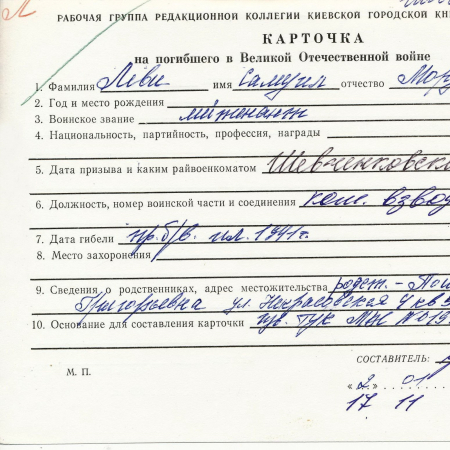 РАБОЧАЯ ГРУППА РЕДАКЦИОННОЙ КОЛЛЕГИИ КИЕВСКОЙ ГОРОДСКОЙ КН
КАРТОЧКА
на погибшего в Великой Отечественной войне
1. Фамилия Леви имя Самуил отчество Мор
2. Год и место рождения
3. Воинское звание лейтенант
4. Национальность, партийность, профессия, награды
5. Дата призыва и каким райвоенкоматом Шевченковски
6. Должность, номер воинской части и соединения ком. взвод
7. Дата гибели пр. б/в. 1941г.
8. Место захоронения
9. Сведения о родственниках, адрес местожительства
Григорьевна ул. Некрасовская 4 кв
10. Основание для составления карточки ГУК №019
СОСТАВИТЕЛЬ:
М. П.
«2» 01
17 11